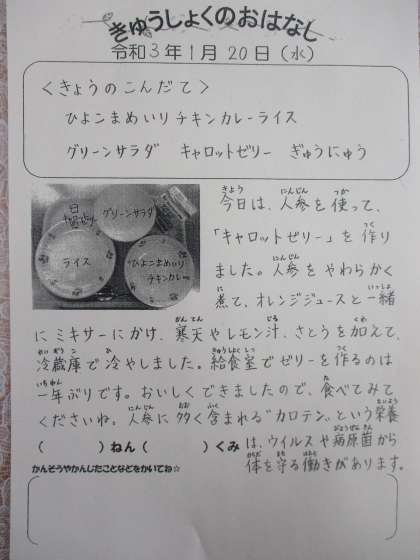 きゅうしょくのおはなし
令和3年1月20日(水)
<きょうのこんだて>
ひよこまめいりチキンカレーライス
グリーンサラダ キャロットゼリー ぎゅうにゅう
グリーンサラダ
ライス
ひよこまめいり
チキンカレー
今日は、人参を使って、
「キャロットゼリー」を作り
ました。人参をやわらかく
煮て、オレンジジュースと一緒
にミキサーにかけ、寒天やレモン汁、さとうを加えて、
冷蔵庫で冷やしました。給食室でゼリーを作るのは
一年ぶりです。おいしくできましたので、食べてみて
くださいね。人参に多く含まれる"カロテン"という栄養
は、ウイルスや病原菌から
体を守る働きがあります。
( )ねん( )くみ
かんそうやかんじたことなどをかいてね☆